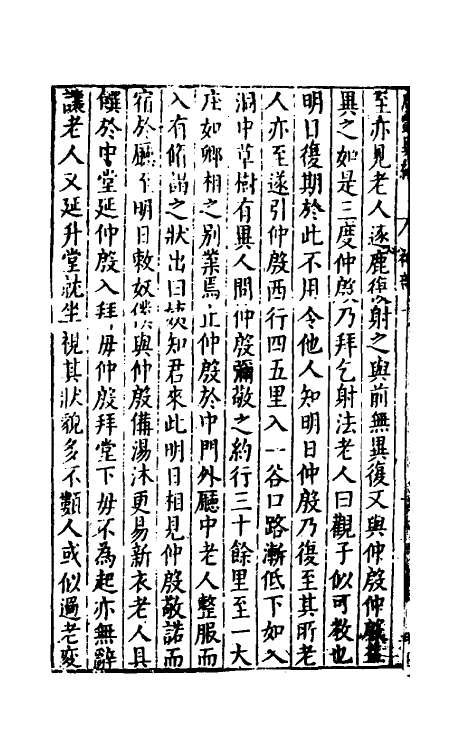 至亦見老人逐鹿復射之與前無異復又與仲殷仲殷益
異之如是三度仲殷乃拜乞射法老人曰觀子似可教也
明日復期於此不用令他人知明日仲殷乃復至其所老
人亦至遂引仲殷西行四五里入一谷口路漸低下如入
洞中草樹有異人間仲殷彌敬之約行三十餘里至一大
庄如卿相之別業焉止仲殷於中門外廳中老人整服而
入有脩謁之狀出曰姨知君來此明日相見仲殷敬諾而
宿於廳至明日敕奴僕與仲殷備湯沐更易新衣老人具
饌於中堂延仲殷入拜母仲殷拜堂下母不為起亦無辭
讓老人又延升堂就坐視其狀貌多不類人或似過老變